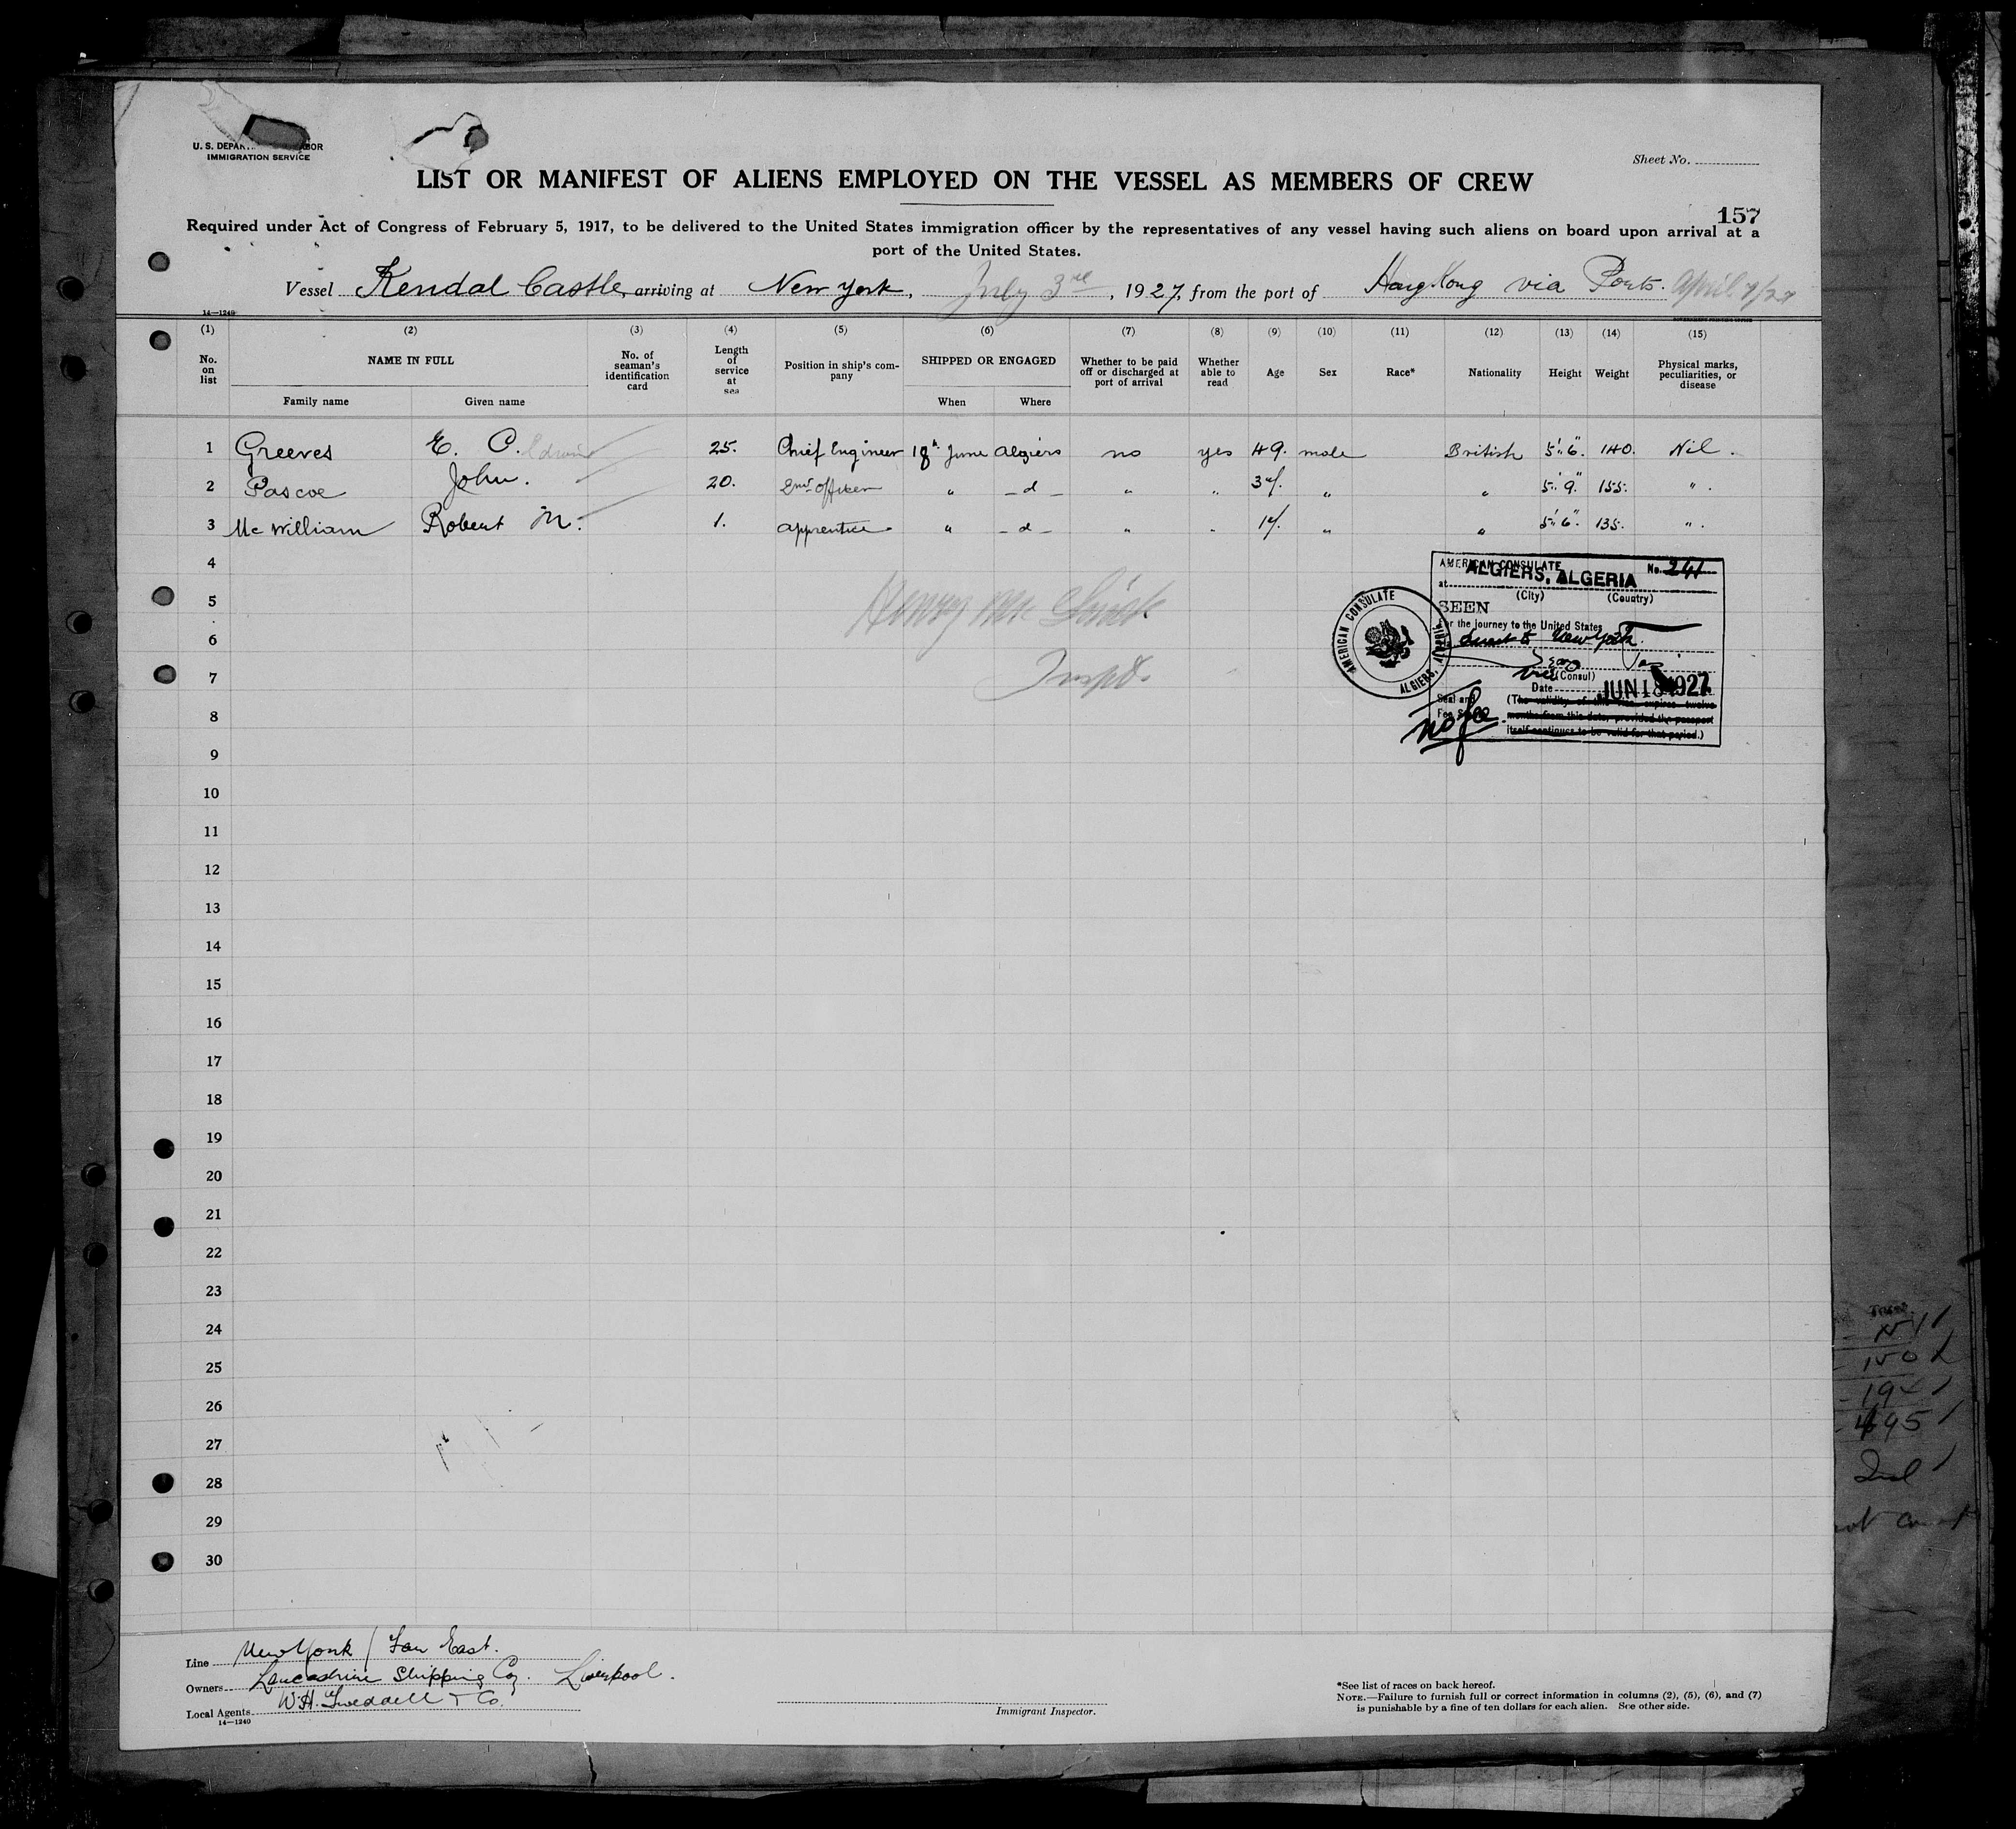 U. S. DEPAR LABOR
IMMIGRATION SERVICE
Sheet No.
LIST OR MANIFEST OF ALIENS EMPLOYED ON THE VESSEL AS MEMBERS OF CREW
157
Required under Act of Congress of February 5, 1917, to be delivered to the United States immigration officer by the representatives of any vessel having such aliens on board upon arrival at a
port of the United States.
Vessel Kendal Castle, arriving at New York, July 3rd, 1927, from the port of Hong Kong via Ports. April 7/27
14—1240
(1) (2) (3) (4) (5) (6) (7) (8) (9) (10) (11) (12) (13) (14) (15)
No. on list NAME IN FULL Family name Given name No. of seaman's identification card Length of service at sea Position in ship's company SHIPPED OR ENGAGED When Where Whether to be paid off or discharged at port of arrival Whether able to read Age Sex Race* Nationality Height Weight Physical marks, peculiarities, or disease
1 Greeves E. C. Edwin 25. Chief Engineer 18th June Algiers no yes 49. male British 5'.6". 140. Nil.
2 Pascoe John. 20. 2nd officer " - d - " " " " 5'.9". 155. ".
3 Mc William Robert M. 1. apprentice " - d - " " " " 5'.6". 135. ".
4
5
6
7
8
9
10
11
12
13
14
15
16
17
18
19
20
21
22
23
24
25
26
27
28
29
30
Henry
Inspt.
AMERICAN CONSULATE No. 241
at ALGIERS, ALGERIA
(City) (Country)
SEEN
For the journey to the United States
New York.
vice (Consul)
Date JUN 18 1927
Seal and
Fee S
no fee
(The validity of this visa expires twelve
months from this date, provided the passport
itself continues to be valid for that period.)
AMERICAN CONSULATE
ALGIERS, ALGERIA
Line New York / Far East.
Owners Lancashire Shipping Coy. Liverpool.
Local Agents W.H. Tweddell & Co.
14—1240
Immigrant Inspector.
*See list of races on back hereof.
NOTE.—Failure to furnish full or correct information in columns (2), (5), (6), and (7)
is punishable by a fine of ten dollars for each alien. See other side.